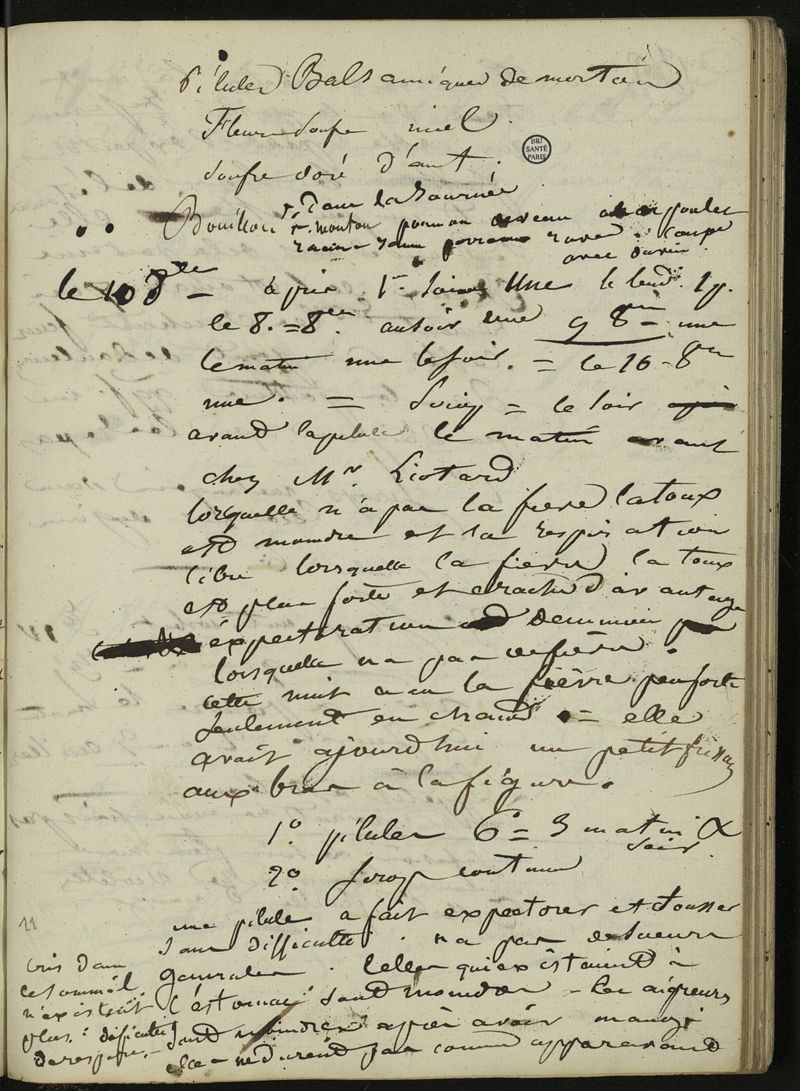 Pilules Balsamiques de mortón
Fleurs soufre miel.
Soufre doré d'ant.
BIU
SANTÉ
PARIS
dans la journée
Bouillon mouton poumon de veau poulet
racine jaune rave. coupé
avec
le 10 8bre = a pris 1re soir une le lend. 1 p.
le 8. = 8bre. au soir une 9 8bre = une
le matin une le soir. = le 16 - 8bre
une. = Sirop = le soir
avand la pilule le matin avant
chez Mr. Liotard
lorsquelle n'a pas la fievre la toux
est moindre et la respiration
libre lorsquelle la fievre la toux
est plus forte et crache d'avantage
expectoration
lorsquelle na pas de fievre.
cette nuit a eu la fièvre peu forte
seulement en chaud = elle
avait ajourdhui un petit frisson
aux bras à la figure.
1º. pilules 6 = 3 matin &
soir.
2º. Sirop continué
une pilule a fait expectorer et tousser
sans difficulté. n'a pas de sueurs
generales. Celles qui existaient à
l'estomac sont moindres - les aigreurs
sont moindres après avoir mangé
elle ne durent pas comme apparavand
11
cris dans
le sommeil
n'existent
plus : difficulté
de respirer. -